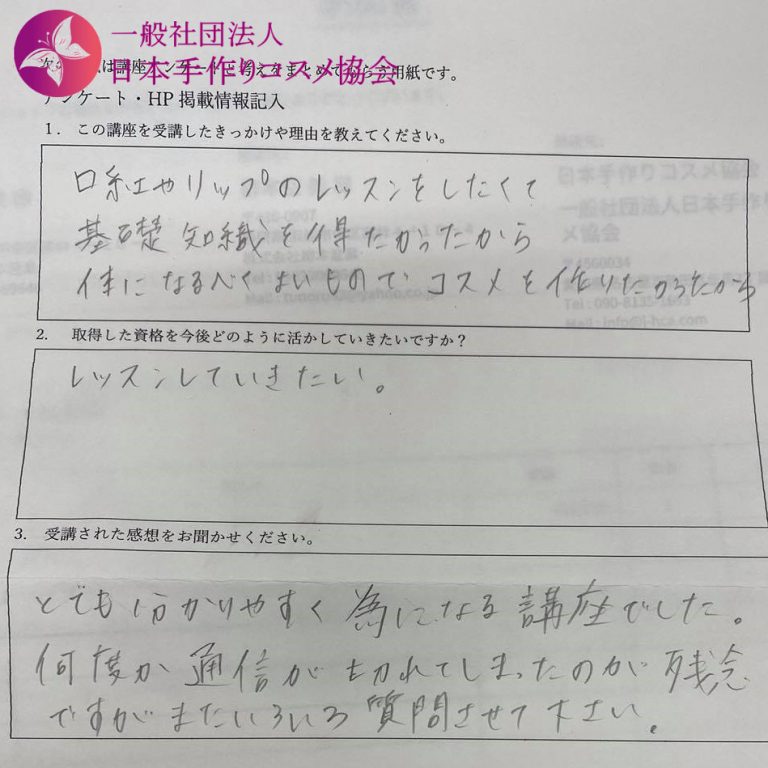 一般社団法人
日本手作りコスメ協会
は講座
考えをまとめ
用紙です。
アンケート・HP 掲載情報記入
1. この講座を受講したきっかけや理由を教えてください。
口紅やリップのレッスンをしたくて
基礎知識を得たかったから
体になるべくよいものでコスメを作りたかったから
2. 取得した資格を今後どのように活かしていきたいですか？
レッスンしていきたい。
3. 受講された感想をお聞かせください。
とても分かりやすく為になる講座でした。
何度か通信が切れてしまったのが残念
ですがまたいろいろ質問させて下さい。